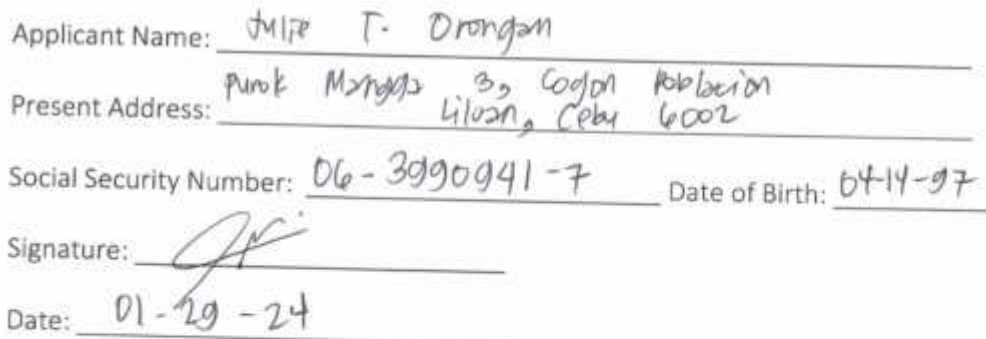 Applicant Name: Julie T. Orongan
Purok Mangga 3, Cogon Poblacion
Present Address: Liloan, Cebu 6002
Social Security Number: 06-3990941-7 Date of Birth: 04-14-97
Signature:
Date: 01-29-24